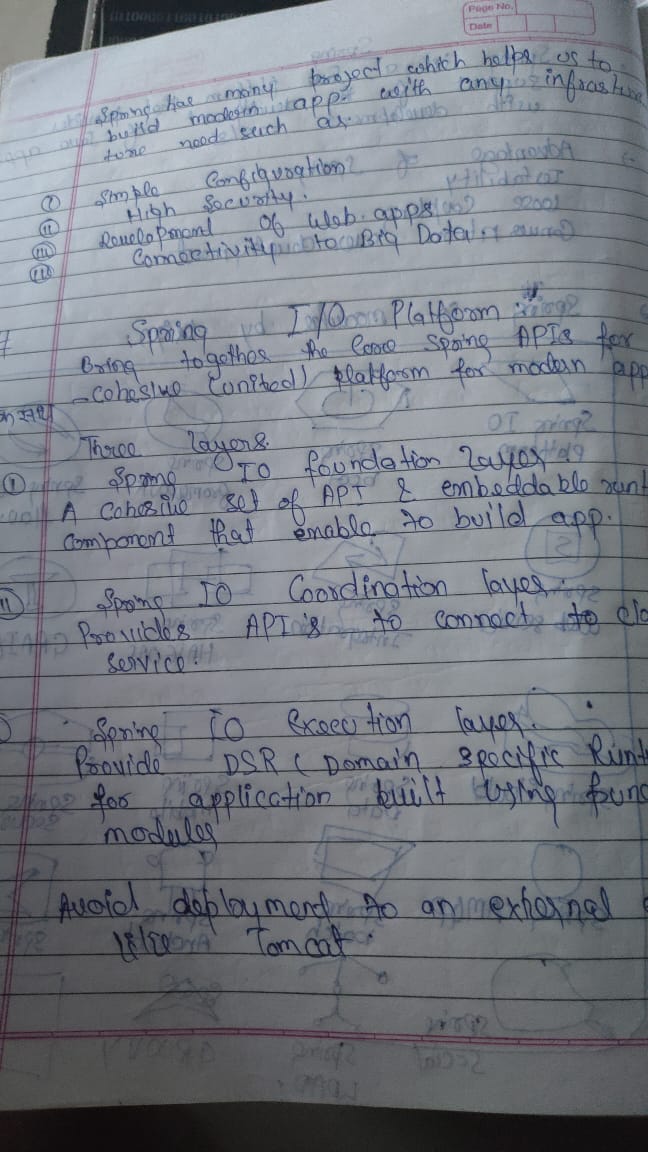 Page No.
Date
Spring has many project which helps us to
build modern app. with any infrastruc
ture need such as.
i Simple Configuration
ii High Security.
iii Development of Web. apps
iiii Connectivity to Big Data.
Spring I/O Platform :
Bring together the Core Spring APIs for
- cohesive (united) platform for modern app
Three layers.
i Spring IO foundation layer
A cohesive set of API & embeddable runt
component that enable to build app.
ii Spring IO Coordination layer.
Provides API's to connect to clo
service.
Spring IO Execution layer.
Provide DSR (Domain Specific Runt
for application built using func
modules
Avoid deployment to an external
like Tomcat.